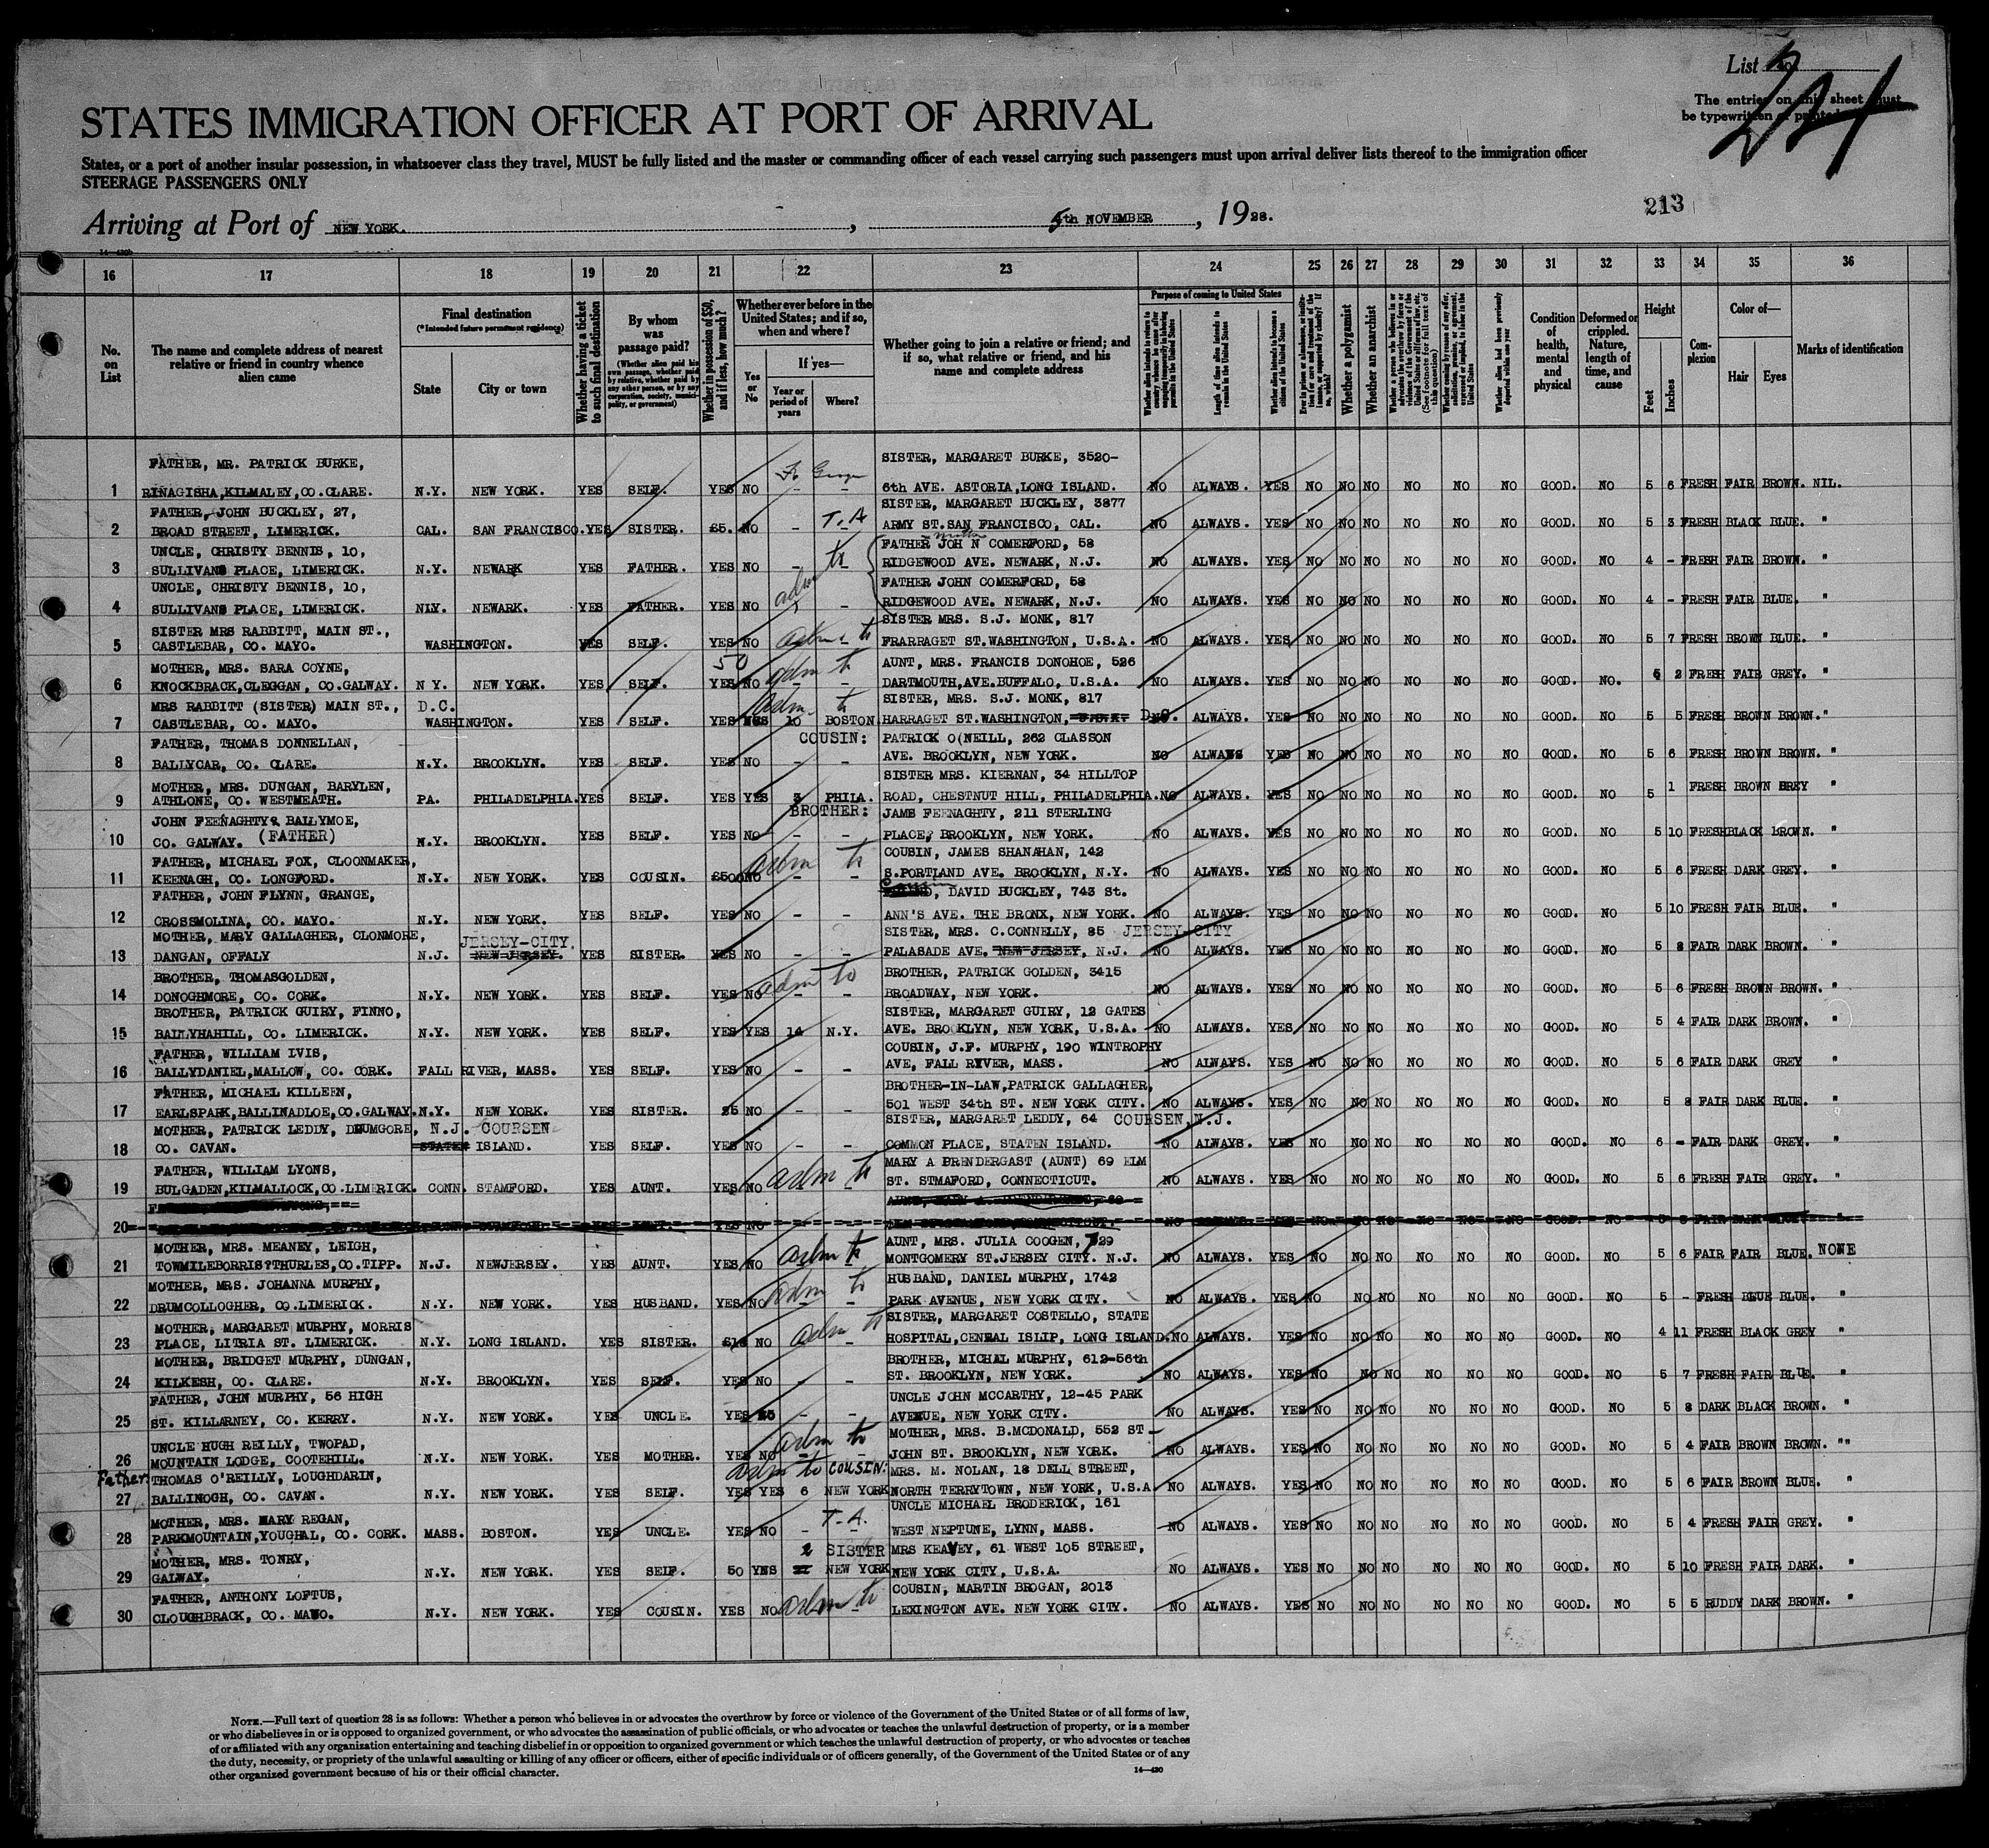 List
The entries on this sheet must
be typewritten or printed
STATES IMMIGRATION OFFICER AT PORT OF ARRIVAL
States, or a port of another insular possession, in whatsoever class they travel, MUST be fully listed and the master or commanding officer of each vessel carrying such passengers must upon arrival deliver lists thereof to the immigration officer
STEERAGE PASSENGERS ONLY
213
Arriving at Port of NEW YORK. , 5th NOVEMBER , 1928.
16 17 18 19 20 21 22 23 24 25 26 27 28 29 30 31 32 33 34 35 36
No. on List
The name and complete address of nearest relative or friend in country whence alien came
Final destination
(*Intended future permanent residence)
State
City or town
Whether having a ticket to such final destination
By whom was passage paid?
(Whether alien paid his own passage, whether paid by relative, whether paid by any other person, or by any corporation, society, municipality, or government)
Whether in possession of $50, and if less, how much?
Whether ever before in the United States; and if so, when and where?
Yes or No
If yes—
Year or period of years
Where?
Whether going to join a relative or friend; and if so, what relative or friend, and his name and complete address
Purpose of coming to United States
Length of time alien intends to remain in the United States
Whether alien intends to become a citizen of the United States
Whether a polygamist
Whether an anarchist
Whether alien had been previously deported within one year
Condition of health, mental and physical
Deformed or crippled. Nature, length of time, and cause
Height
Feet
Inches
Complexion
Color of—
Hair
Eyes
Marks of identification
FATHER, MR. PATRICK BURKE, SISTER, MARGARET BURKE, 3520-
1 RINAGISHA,KILMALEY,CO.CLARE. N.Y. NEW YORK. YES SELF. YES NO - - 6th AVE. ASTORIA,LONG ISLAND. NO ALWAYS. YES NO NO NO NO NO NO GOOD. NO 5 6 FRESH FAIR BROWN. NIL.
FATHER, JOHN BUCKLEY, 27, T.A SISTER, MARGARET BUCKLEY, 3877
2 BROAD STREET, LIMERICK. CAL. SAN FRANCISCO. YES SISTER. £5. NO - ARMY ST.SAN FRANCISCO, CAL. NO ALWAYS. YES NO NO NO NO NO NO GOOD. NO 5 3 FRESH BLACK BLUE. "
UNCLE, CHRISTY BENNIS, 10, FATHER JOH N COMERFORD, 58
3 SULLIVANS PLACE, LIMERICK. N.Y. NEWARK YES FATHER. YES NO - - RIDGEWOOD AVE. NEWARK, N.J. NO ALWAYS. YES NO NO NO NO NO NO GOOD. NO 4 - FRESH FAIR BROWN. "
UNCLE, CHRISTY BENNIS, 10, adm to FATHER JOHN COMERFORD, 58
4 SULLIVANS PLACE, LIMERICK. NLY. NEWARK. YES FATHER. YES NO - RIDGEWOOD AVE. NEWARK, N.J. NO ALWAYS. YES NO NO NO NO NO NO GOOD. NO 4 - FRESH FAIR BLUE. "
SISTER MRS RABBITT, MAIN ST., adm to SISTER MRS. S.J. MONK, 817
5 CASTLEBAR, CO. MAYO. WASHINGTON. YES SELF. YES NO FRARRAGET ST.WASHINGTON, U.S.A. NO ALWAYS. YES NO NO NO NO NO NO GOOD. NO 5 7 FRESH BROWN BLUE. "
MOTHER, MRS. SARA COYNE, 50 adm to AUNT, MRS. FRANCIS DONOHOE, 526
6 KNOCKBRACK,CLEGGAN, CO.GALWAY. N Y. NEW YORK. YES SELF. YES NO - - DARTMOUTH,AVE.BUFFALO, U.S.A. NO ALWAYS. YES NO NO NO NO NO NO GOOD. NO. 5 2 FRESH FAIR GREY. "
MRS RABBITT (SISTER) MAIN ST., D.C. adm to SISTER, MRS. S.J. MONK, 817
7 CASTLEBAR, CO. MAYO. WASHINGTON. YES SELF. YES YES 10 BOSTON HARRAGET ST.WASHINGTON, U.S.A. D.C. NO ALWAYS. YES NO NO NO NO NO NO GOOD. NO 5 5 FRESH BROWN BROWN. "
FATHER, THOMAS DONNELLAN, COUSIN: PATRICK O(NEILL, 262 CLASSON
8 BALLYCAR, CO. CLARE. N.Y. BROOKLYN. YES SELF. YES NO - - AVE. BROOKLYN, NEW YORK. NO ALWAYS YES NO NO NO NO NO NO GOOD. NO 5 6 FRESH BROWN BROWN. "
MOTHER, MRS. DUNGAN, BARYLEN, SISTER MRS. KIERNAN, 34 HILLTOP
9 ATHLONE, CO. WESTMEATH. PA. PHILADELPHIA. YES SELF. YES YES 3 PHILA. ROAD, CHESTNUT HILL, PHILADELPHIA. NO ALWAYS. YES NO NO NO NO NO NO GOOD. NO 5 1 FRESH BROWN GREY "
JOHN FEENAGHTY, BALLYMOE, BROTHER: JAME FEENAGHTY, 211 STERLING
10 CO. GALWAY. (FATHER) N.Y. BROOKLYN. YES SELF. YES NO - - PLACE, BROOKLYN, NEW YORK. NO ALWAYS. YES NO NO NO NO NO NO GOOD. NO 5 10 FRESH BLACK BROWN. "
FATHER, MICHAEL FOX, CLOONMAKER, adm to COUSIN, JAMES SHANAHAN, 142
11 KEENAGH, CO. LONGFORD. N.Y. NEW YORK. YES COUSIN. NO - - S.PORTLAND AVE. BROOKLYN, N.Y. NO ALWAYS. YES NO NO NO NO NO NO GOOD. NO 5 6 FRESH DARK GREY. "
FATHER, JOHN FLYNN, GRANGE, Cousin, DAVID BUCKLEY, 743 St.
12 CROSSMOLINA, CO. MAYO. N.Y. NEW YORK. YES SELF. YES NO - - ANN'S AVE. THE BRONX, NEW YORK. NO ALWAYS. YES NO NO NO NO NO NO GOOD. NO 5 10 FRESH FAIR BLUE. "
MOTHER, MARY GALLAGHER, CLONMORE, JERSEY-CITY. SISTER, MRS. C.CONNELLY, 85 JERSEY-CITY
13 DANGAN, OFFALY N.J. NEW JERSEY. YES SISTER. YES NO PALASADE AVE. NEW JERSEY, N.J. NO ALWAYS. YES NO NO NO NO NO NO GOOD. NO 5 8 FAIR DARK BROWN. "
BROTHER, THOMASGOLDEN, adm to BROTHER, PATRICK GOLDEN, 3415
14 DONOGHMORE, CO. CORK. N.Y. NEW YORK. YES SELF. YES NO - - BROADWAY, NEW YORK. NO ALWAYS. YES NO NO NO NO NO NO GOOD. NO 5 6 FRESH BROWN BROWN. "
BROTHER, PATRICK GUIRY, FINNO, SISTER, MARGARET GUIRY, 12 GATES
15 BALLYHAHILL, CO. LIMERICK. N.Y. NEW YORK. YES SELF. YES YES 14 N.Y. AVE. BROOKLYN, NEW YORK, U.S.A. NO ALWAYS. YES NO NO NO NO NO NO GOOD. NO 5 4 FAIR DARK BROWN. "
FATHER, WILLIAM IVIS, COUSIN, J.F. MURPHY, 190 WINTROPHY
16 BALLYDANIEL,MALLOW, CO. CORK. FALL RIVER, MASS. YES SELF. YES NO - - AVE, FALL RIVER, MASS. NO ALWAYS. YES NO NO NO NO NO NO GOOD. NO 5 6 FAIR DARK GREY "
FATHER, MICHAEL KILLEEN, BROTHER-IN-LAW,PATRICK GALLAGHER,
17 EARLSPARK,BALLINADLOE,CO.GALWAY. N.Y. NEW YORK. YES SISTER. 25 NO - - 501 WEST 34th ST. NEW YORK CITY. NO ALWAYS. YES NO NO NO NO NO NO GOOD. NO 5 8 FAIR DARK BLUE. "
MOTHER, PATRICK LEDDY, DRUMGORE, N.J. COURSEN SISTER, MARGARET LEDDY, 64 COURSEN,N.J.
18 CO. CAVAN. STATEN ISLAND. YES SELF. YES NO - - COMMON PLACE, STATEN ISLAND. NO ALWAYS. YES NO NO NO NO NO NO GOOD. NO 6 - FAIR DARK GREY. "
FATHER, WILLIAM LYONS, adm to MARY A PRENDERGAST (AUNT) 69 ELM
19 BULGADEN,KILMALLOCK,CO.LIMERICK. CONN. STAMFORD. YES AUNT. YES NO - - ST. STMAFORD, CONNECTICUT. NO ALWAYS. YES NO NO NO NO NO NO GOOD. NO 5 6 FRESH FAIR GREY. "
20
MOTHER, MRS. MEANEY, LEIGH, adm to AUNT, MRS. JULIA COOGEN, 729
21 TOWMILEBORRIS?THURLES,CO.TIPP. N.J. NEWJERSEY. YES AUNT. YES NO MONTGOMERY ST.JERSEY CITY. N.J. NO ALWAYS. YES NO NO NO NO NO NO GOOD. NO 5 6 FAIR FAIR BLUE. NONE
MOTHER, MRS. JOHANNA MURPHY, adm to HUSBAND, DANIEL MURPHY, 1742
22 DRUMCOLLOGHER, CO.LIMERICK. N.Y. NEW YORK. YES HUSBAND. YES NO - - PARK AVENUE, NEW YORK CITY. NO ALWAYS. YES NO NO NO NO NO NO GOOD. NO 5 - FRESH BLUE BLUE. "
MOTHER, MARGARET MURPHY, MORRIS adm to SISTER, MARGARET COSTELLO, STATE
23 PLACE, LITRIA ST. LIMERICK. N.Y. LONG ISLAND. YES SISTER. NO - HOSPITAL,CENRAL ISLIP, LONG ISLAND. NO ALWAYS. YES NO NO NO NO NO NO GOOD. NO 4 11 FRESH BLACK GREY "
MOTHER, BRIDGET MURPHY, DUNGAN, BROTHER, MICHAL MURPHY, 612-56th
24 KILKESH, CO. CLARE. N.Y. BROOKLYN. YES SELF. YES NO - - ST. BROOKLYN, NEW YORK. NO ALWAYS. YES NO NO NO NO NO NO GOOD. NO 5 7 FRESH FAIR BLUE. "
FATHER, JOHN MURPHY, 56 HIGH UNCLE JOHN MCCARTHY, 12-45 PARK
25 ST. KILLARNEY, CO. KERRY. N.Y. NEW YORK. YES UNCLE. YES - - AVENUE, NEW YORK CITY. NO ALWAYS. YES NO NO NO NO NO NO GOOD. NO 5 8 DARK BLACK BROWN. "
UNCLE HUGH REILLY, TWOPAD, adm to MOTHER, MRS. B.MCDONALD, 552 ST
26 MOUNTAIN LODGE, COOTEHILL. N.Y. NEW YORK. YES MOTHER. YES NO - - JOHN ST. BROOKLYN, NEW YORK. NO ALWAYS. YES NO NO NO NO NO NO GOOD. NO 5 4 FAIR BROWN BROWN. ""
Father: THOMAS O'REILLY, LOUGHDARIN, adm to COUSIN: MRS. M. NOLAN, 18 DELL STREET,
27 BALLINOGH, CO. CAVAN. N.Y. NEW YORK. YES SELF. YES YES 6 NEW YORK NORTH TERRYTOWN, NEW YORK, U.S.A NO ALWAYS. YES NO NO NO NO NO NO GOOD. NO 5 6 FAIR BROWN BLUE. "
MOTHER, MRS. MARY REGAN, T.A. UNCLE MICHAEL BRODERICK, 161
28 PARKMOUNTAIN,YOUGHAL, CO. CORK. MASS. BOSTON. YES UNCLE. YES NO - - WEST NEPTUNE, LYNN, MASS. NO ALWAYS. YES NO NO NO NO NO NO GOOD. NO 5 4 FRESH FAIR GREY. "
MOTHER, MRS. TONRY, 2 SISTER MRS KEAVEY, 61 WEST 105 STREET,
29 GALWAY. N.Y. NEW YORK. YES SELF. 50 YES NEW YORK NEW YORK CITY, U.S.A. NO ALWAYS. YES NO NO NO NO NO NO GOOD. NO 5 10 FRESH FAIR DARK. "
FATHER, ANTHONY LOFTUS, adm to COUSIN, MARTIN BROGAN, 2013
30 CLOUGHBRACK, CO. MAYO. N.Y. NEW YORK. YES COUSIN. YES NO LEXINGTON AVE. NEW YORK CITY. NO ALWAYS. YES NO NO NO NO NO NO GOOD. NO 5 5 RUDDY DARK BROWN. "
NOTE.—Full text of question 28 is as follows: Whether a person who believes in or advocates the overthrow by force or violence of the Government of the United States or of all forms of law,
or who disbelieves in or is opposed to organized government, or who advocates the assassination of public officials, or who advocates or teaches the unlawful destruction of property, or is a member
of or affiliated with any organization entertaining and teaching disbelief in or opposition to organized government or which teaches the unlawful destruction of property, or who advocates or teaches
the duty, necessity, or propriety of the unlawful assaulting or killing of any officer or officers, either of specific individuals or of officers generally, of the Government of the United States or of any
other organized government because of his or their official character.
14—420